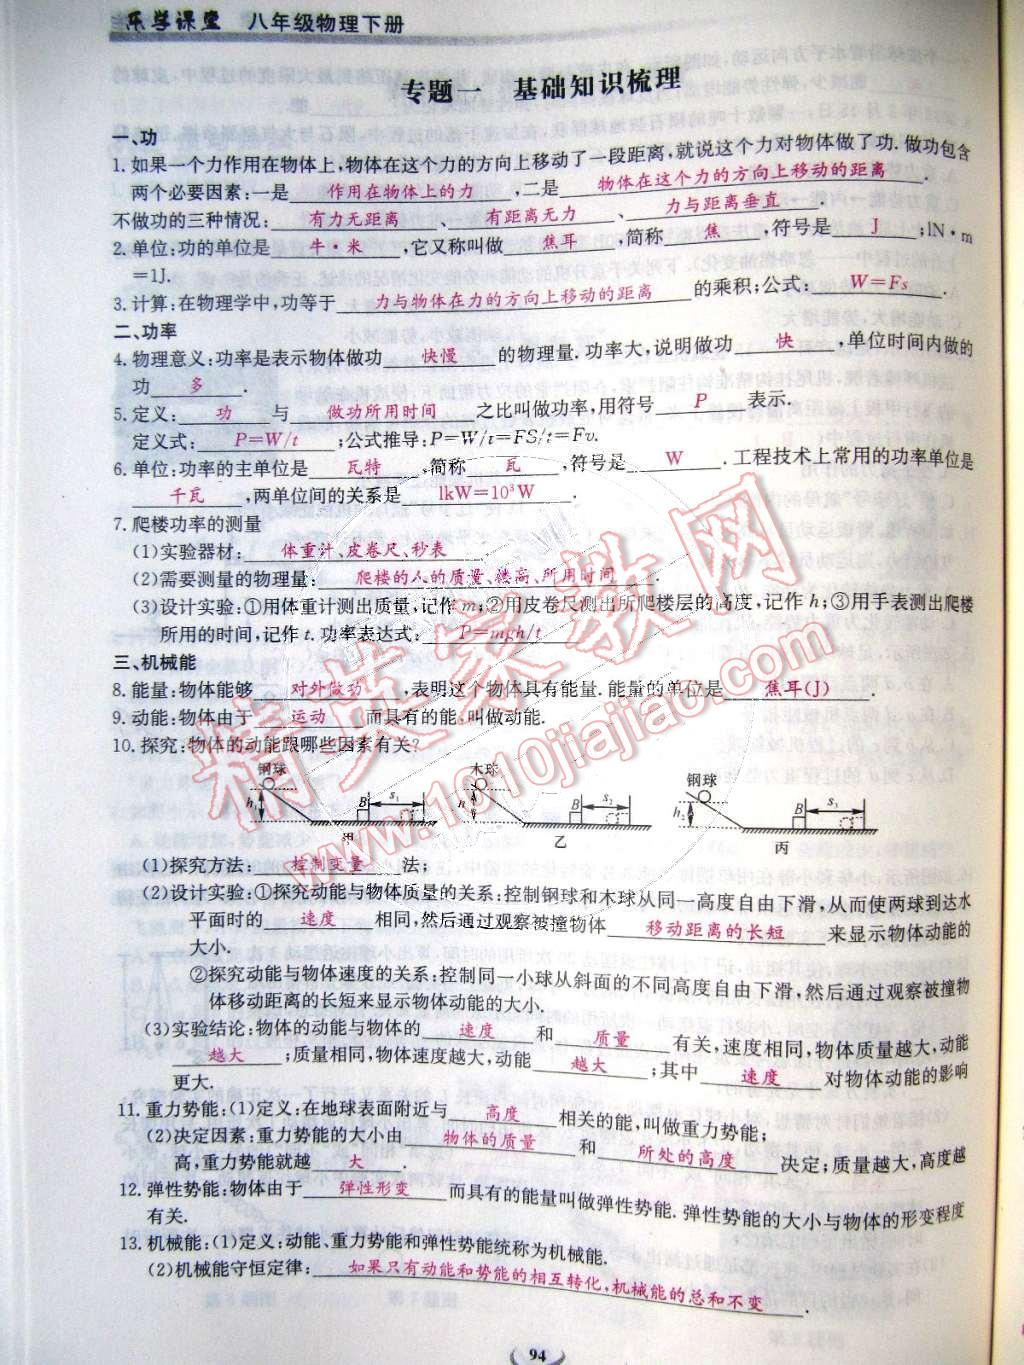 乐学课堂 八年级物理下册
专题一 基础知识梳理
一、功
1. 如果一个力作用在物体上,物体在这个力的方向上移动了一段距离,就说这个力对物体做了功. 做功包含
两个必要因素:一是 作用在物体上的力 ,二是 物体在这个力的方向上移动的距离 .
不做功的三种情况: 有力无距离 、 有距离无力 、 力与距离垂直 .
2. 单位:功的单位是 牛·米 ,它又称叫做 焦耳 ,简称 焦 ,符号是 J ;1N·m
=1J.
3. 计算:在物理学中,功等于 力与物体在力的方向上移动的距离 的乘积;公式: W=Fs .
二、功率
4. 物理意义:功率是表示物体做功 快慢 的物理量. 功率大,说明做功 快 ,单位时间内做的
功 多 .
5. 定义: 功 与 做功所用时间 之比叫做功率,用符号 P 表示.
定义式: P=W/t ;公式推导:P=W/t=FS/t=Fv.
6. 单位:功率的主单位是 瓦特 ,简称 瓦 ,符号是 W . 工程技术上常用的功率单位是
千瓦 ,两单位间的关系是 1kW=10³W .
7. 爬楼功率的测量
(1)实验器材: 体重计、皮卷尺、秒表 .
(2)需要测量的物理量: 爬楼的人的质量、楼高、所用时间 .
(3)设计实验:①用体重计测出质量,记作 m;②用皮卷尺测出所爬楼层的高度,记作 h;③用手表测出爬楼
所用的时间,记作 t. 功率表达式: P=mgh/t .
三、机械能
8. 能量:物体能够 对外做功 ,表明这个物体具有能量. 能量的单位是 焦耳(J) .
9. 动能:物体由于 运动 而具有的能,叫做动能.
10. 探究:物体的动能跟哪些因素有关?
钢球 木球 钢球
h₁ B s₁ h B s₂ h₂ B s₃
甲 乙 丙
(1)探究方法: 控制变量 法;
(2)设计实验:①探究动能与物体质量的关系:控制钢球和木球从同一高度自由下滑,从而使两球到达水
平面时的 速度 相同,然后通过观察被撞物体 移动距离的长短 来显示物体动能的
大小.
②探究动能与物体速度的关系:控制同一小球从斜面的不同高度自由下滑,然后通过观察被撞物
体移动距离的长短来显示物体动能的大小.
(3)实验结论:物体的动能与物体的 速度 和 质量 有关,速度相同,物体质量越大,动能
越大 ;质量相同,物体速度越大,动能 越大 ;其中 速度 对物体动能的影响
更大.
11. 重力势能:(1)定义:在地球表面附近与 高度 相关的能,叫做重力势能;
(2)决定因素:重力势能的大小由 物体的质量 和 所处的高度 决定;质量越大,高度越
高,重力势能就越 大 .
12. 弹性势能:物体由于 弹性形变 而具有的能量叫做弹性势能. 弹性势能的大小与物体的形变程度
有关.
13. 机械能:(1)定义:动能、重力势能和弹性势能统称为机械能.
(2)机械能守恒定律: 如果只有动能和势能的相互转化,机械能的总和不变 .
94
精英家教网
www.1010jiajiao.com